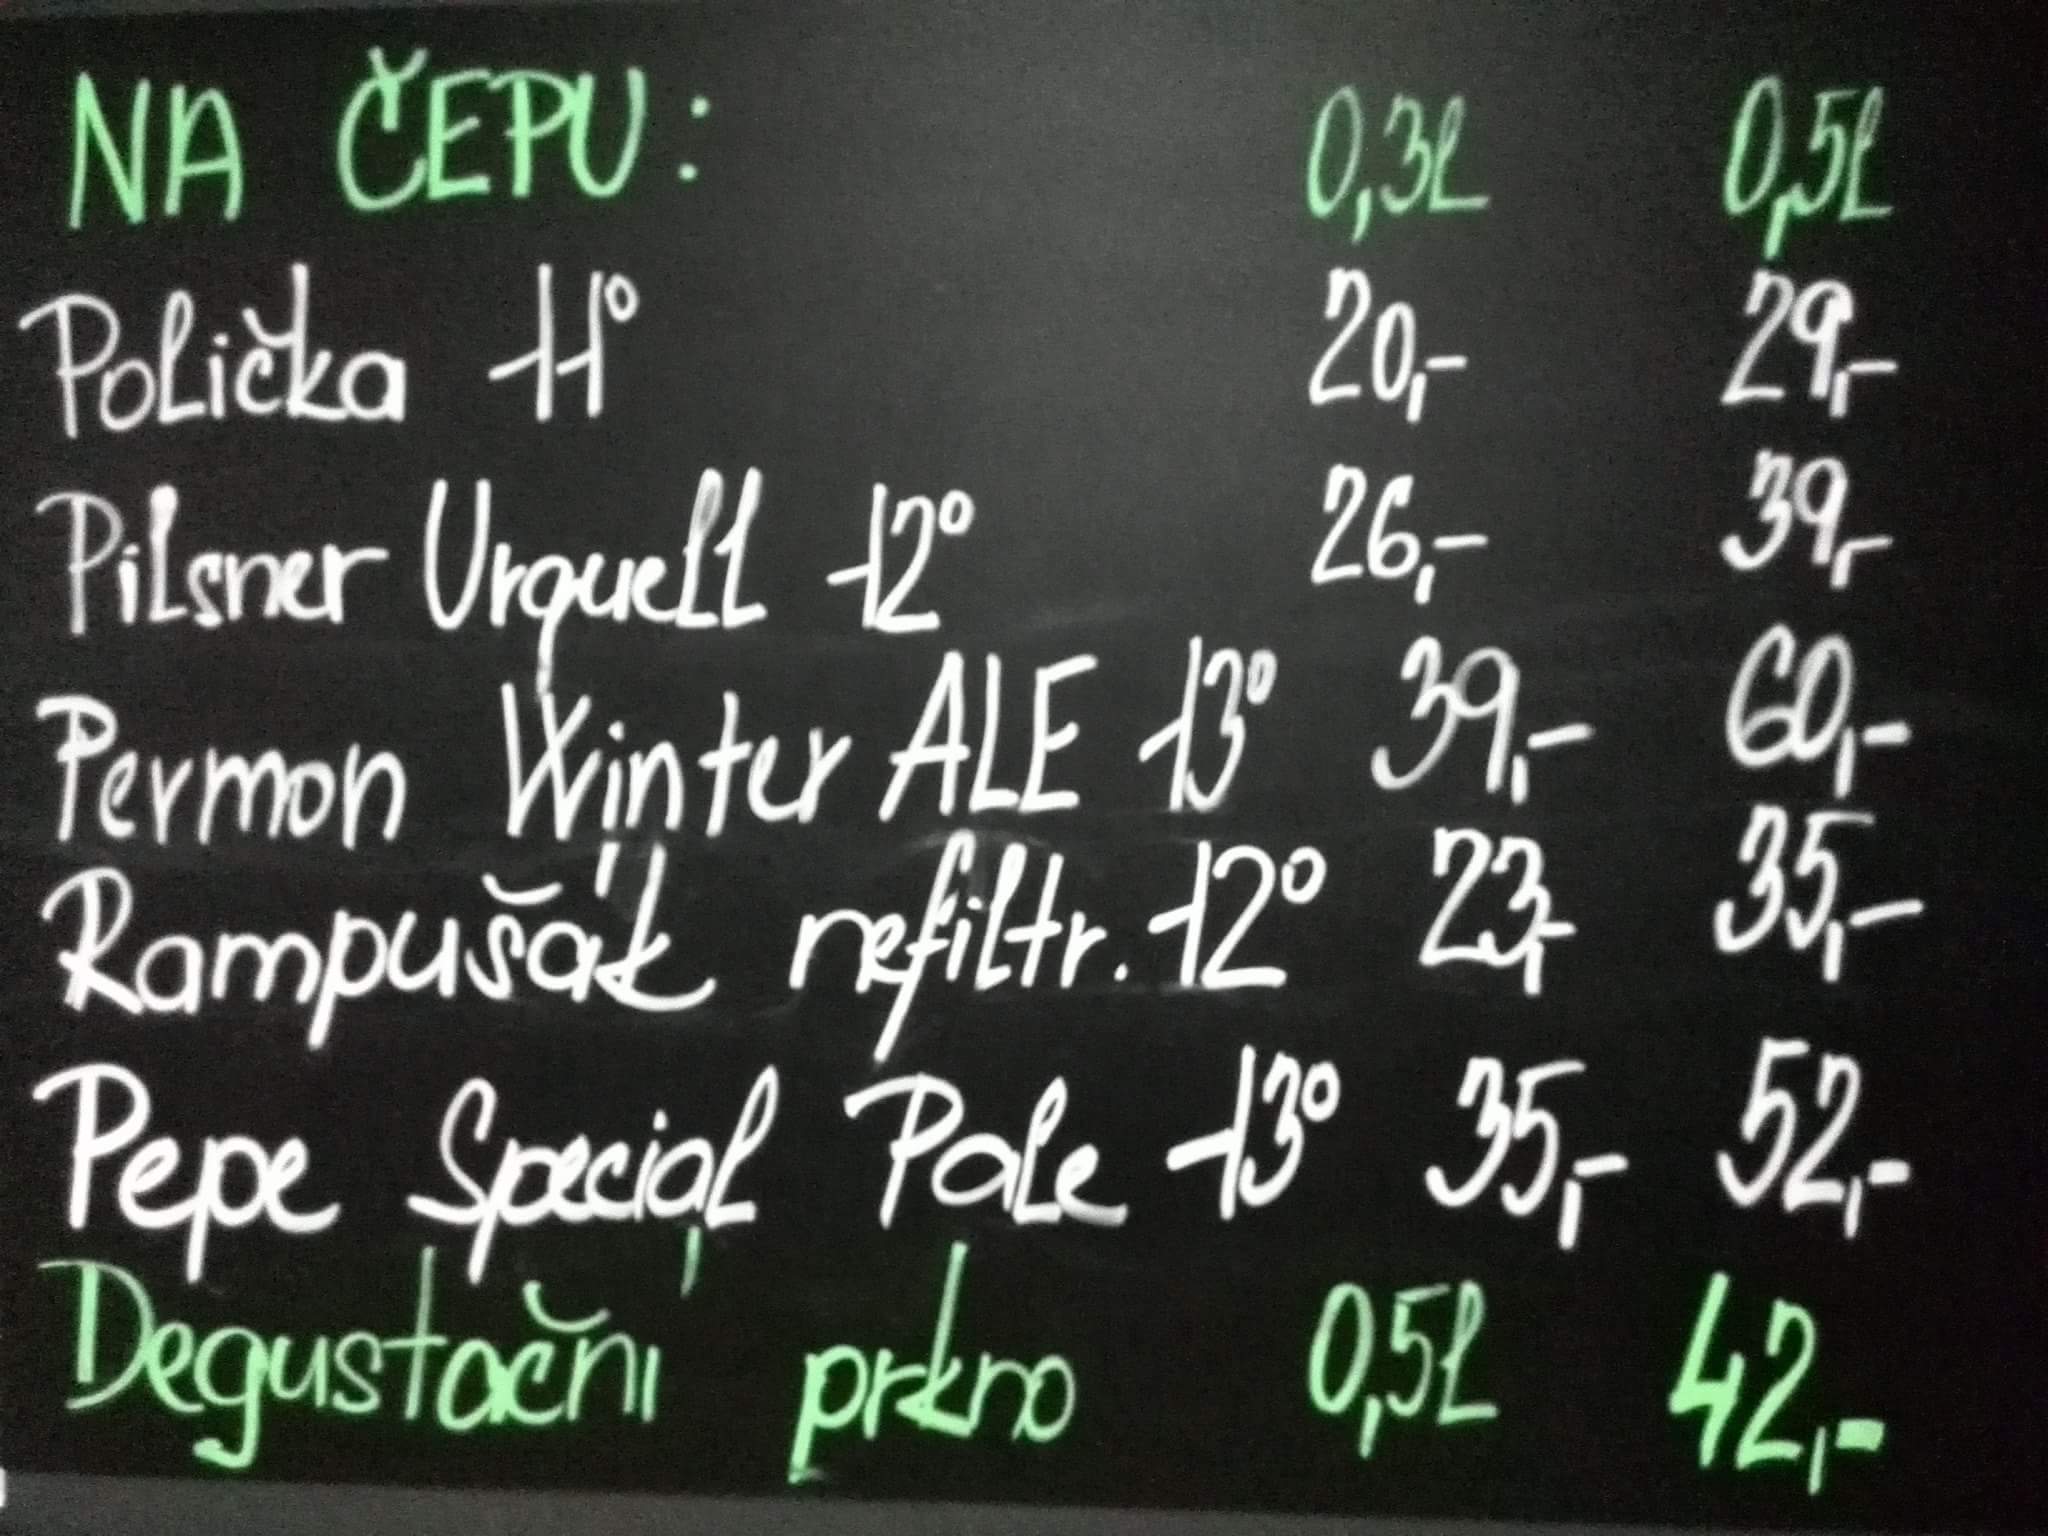 NA ČEPU: 0,3l 0,5l
Polička 11° 20,- 29,-
Pilsner Urquell 12° 26,- 39,-
Permon Winter ALE 13° 39,- 60,-
Rampušák nefiltr. 12° 23,- 35,-
Pepe Special Pale 13° 35,- 52,-
Degustační prkno 0,5l 42,-